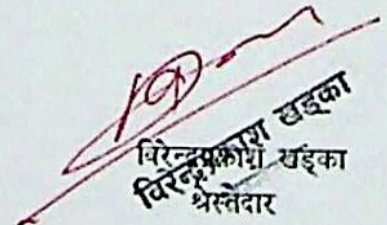 विरेन्द्रप्रकाश खड्का
विरेन्द्रप्रकाश खड्का
श्रेस्तेदार